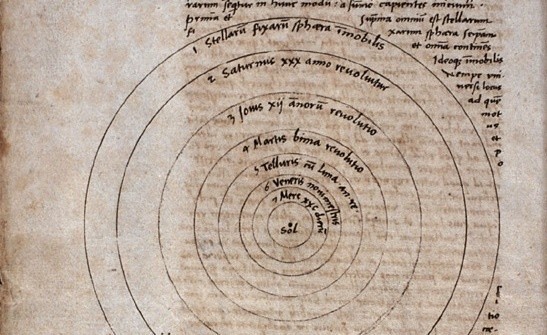 rarum sequitur in hunc modū: a summo capientes initium.
prima et
suprema omniū est stellarum
fixarum sphæra seipsam
et omnia continēs
Ideoque īmobilis
nempe vni-
versi locus
ad quē
mot
us
et
p
o
1 Stellarū fixarū sphæra imobilis
2 Saturnus xxx anno revolvitur
3 Iovis xij annorū revolutio
4 Martis bima revolutio
5 Telluris cū luna an. re.
6 Veneris nonimestris
7 Merc xxc dierū
Sol
tio
ne-